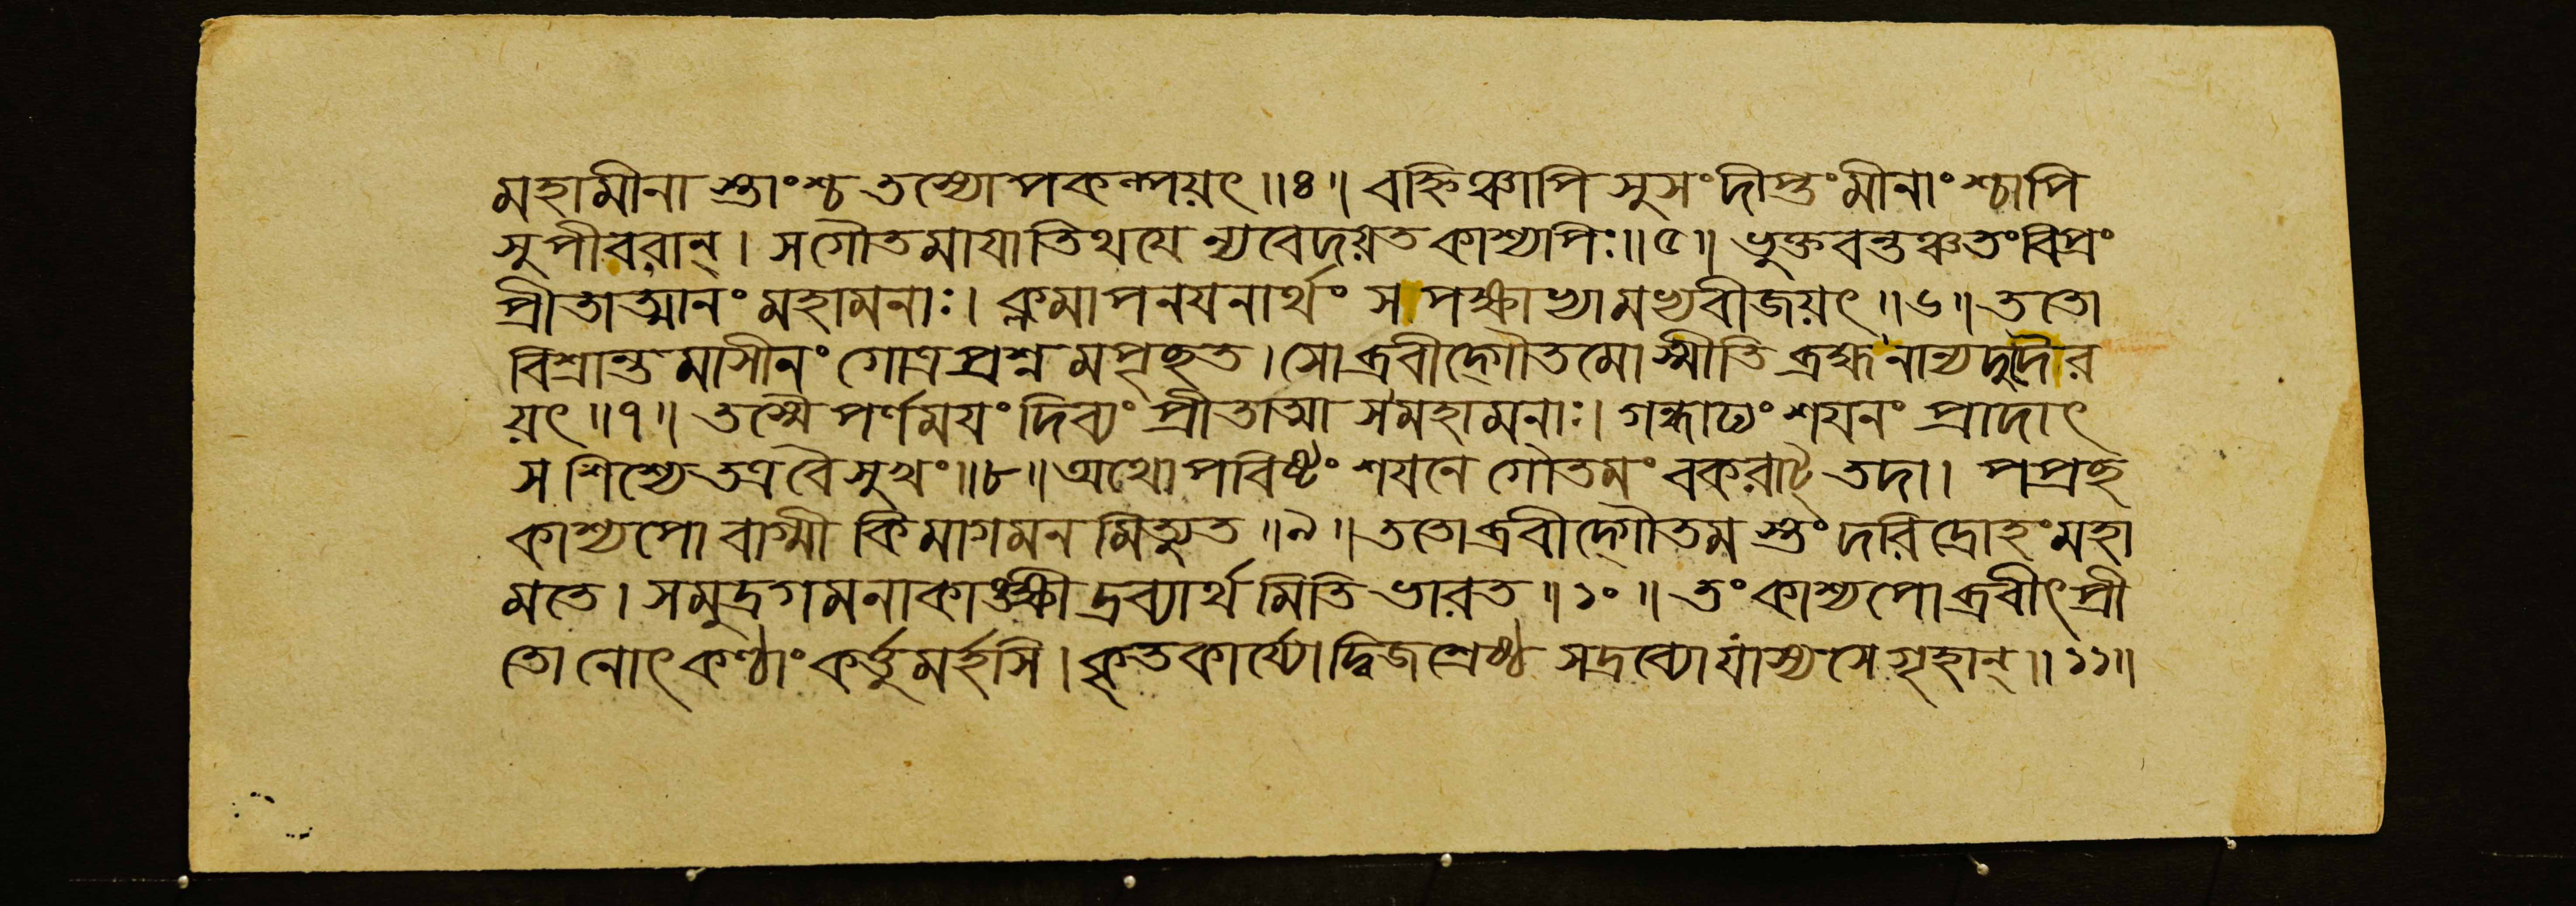 মহামীনা স্তাংশ্চ তস্যোপকল্পয়ৎ॥৪॥ বহ্নিঞ্চাপি সুসংদীপ্তং মীনাংশ্চাপি
সুপীবরান্। স গৌতমাযাতিথযে ন্যবেদয়ত কাশ্যপিঃ॥৫॥ ভুক্তবন্তঞ্চ তং বিপ্রং
প্রীতাত্মানং মহামনাঃ। ক্লমাপনযনার্থং স পক্ষাভ্যামভ্যবীজয়ৎ॥৬॥ ততো
বিশ্রান্তমাসীনং গোত্রপ্রশ্নমপৃচ্ছত। সোব্রবীদ্গৌতমোস্মীতি ব্রহ্মনান্যদুদৈর
য়ৎ॥৭॥ তস্মৈ পর্ণময়ং দিব্যং প্রীতাত্মা স মহামনাঃ। গন্ধাঢ্যং শযনং প্রাদাৎ
স শিশ্যে তত্র বৈ সুখং॥৮॥ অথোপবিষ্টং শযনে গৌতমং বকরাট্ তদা। পপ্রচ্ছ
কাশ্যপো বাগ্মী কিমাগমনমিত্যুত॥৯॥ ততোব্রবীদ্গৌতমস্তং দরিদ্রোহং মহা
মতে। সমুদ্রগমনাকাঙ্ক্ষী দ্রব্যার্থমিতি ভারত॥১০॥ তং কাশ্যপোব্রবীৎ প্রী
তো নোৎকণ্ঠাং কর্ত্তুমর্হসি। কৃতকার্য্যো দ্বিজশ্রেষ্ঠ সদ্রব্যো যাস্যসে গৃহান্॥১১॥